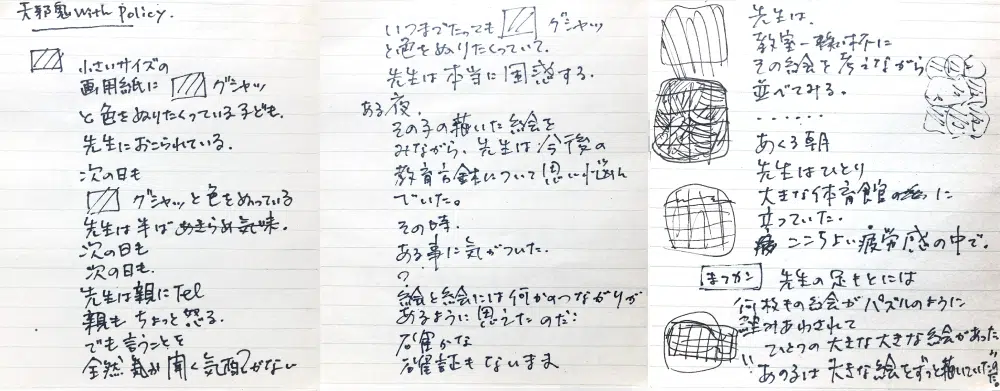 天邪鬼 with Policy.
小さいサイズの
画用紙に グシャッ
と色をぬりたくっている子ども.
先生におこられている.
次の日も
グシャッと色をぬっている
先生は半ばあきらめ気味.
次の日も
次の日も.
先生は親にTel
親も ちょっと怒る.
でも言うことを
全然 聞く気配がない
いつまでたっても グシャッ
と色をぬりたくっていて.
先生は本当に困惑する.
ある夜.
その子の描いた絵を
みながら、先生は今後の
教育方針について思い悩ん
でいた。
その時.
ある事に気がついた.
?
絵と絵には何かのつながりが
あるように思えたのだ!
確かな
確証もないまま
先生は.
教室一杯に
その絵を考えながら
並べてみる.
......
あくる朝
先生はひとり
大きな体育館に
立っていた.
ここちよい疲労感の中で.
先生の足もとには
何枚もの絵がパズルのように
組みあわされて
ひとつの大きな大きな絵があった
あの子は大きな絵をずっと描いていた